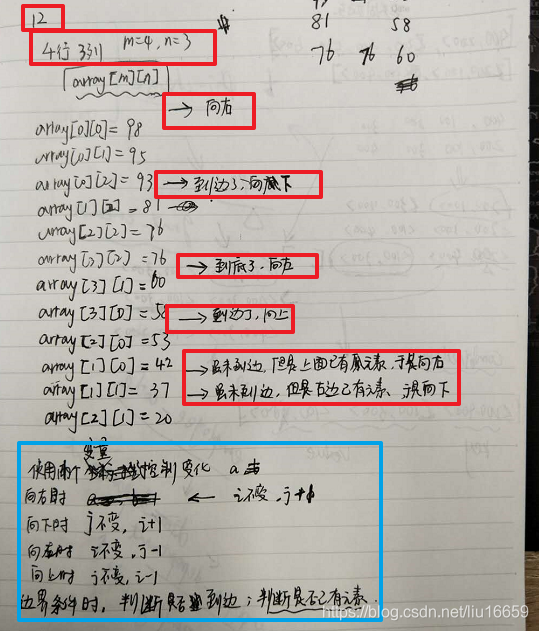 12
4行3列 m=4, n=3
array[m][n]
81 58
76 76 60
→ 向右
array[0][0] = 98
array[0][1] = 95
array[0][2] = 93 → 到边了,向下
array[1][2] = 81
array[2][2] = 76
array[3][2] = 76 → 到底了,向左
array[3][1] = 60
array[3][0] = 58 → 到边了,向上
array[2][0] = 53
array[1][0] = 42 → 虽未到边,但是上面已有元素,于是向右
array[1][1] = 37 → 虽未到边,但是右边已有元素、于是向下
array[2][1] = 20
变量
使用两个控制变化 a
向右时 ← i不变,j+1
向下时 j不变,i+1
向左时 i不变,j-1
向上时 j不变,i-1
边界条件时,判断是否到边;判断是否已有元素.
https://blog.csdn.net/liu16659